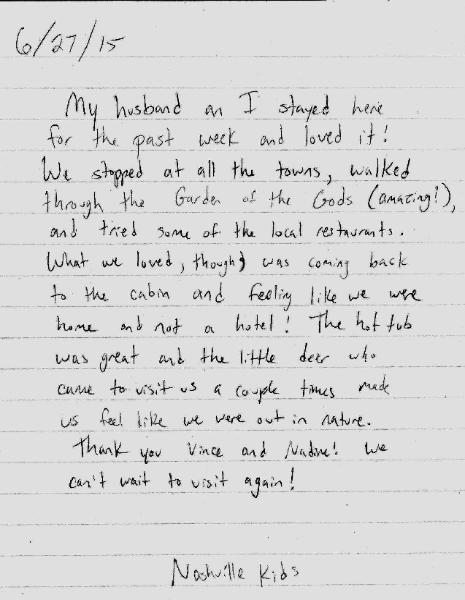 6/27/15
My husband an I stayed here
for the past week and loved it!
We stopped at all the towns, walked
through the Garden of the Gods (amazing!),
and tried some of the local restaurants.
What we loved, though, was coming back
to the cabin and feeling like we were
home and not a hotel! The hot tub
was great and the little deer who
came to visit us a couple times made
us feel like we were out in nature.
Thank you Vince and Nadine! We
can't wait to visit again!
Nashville Kids